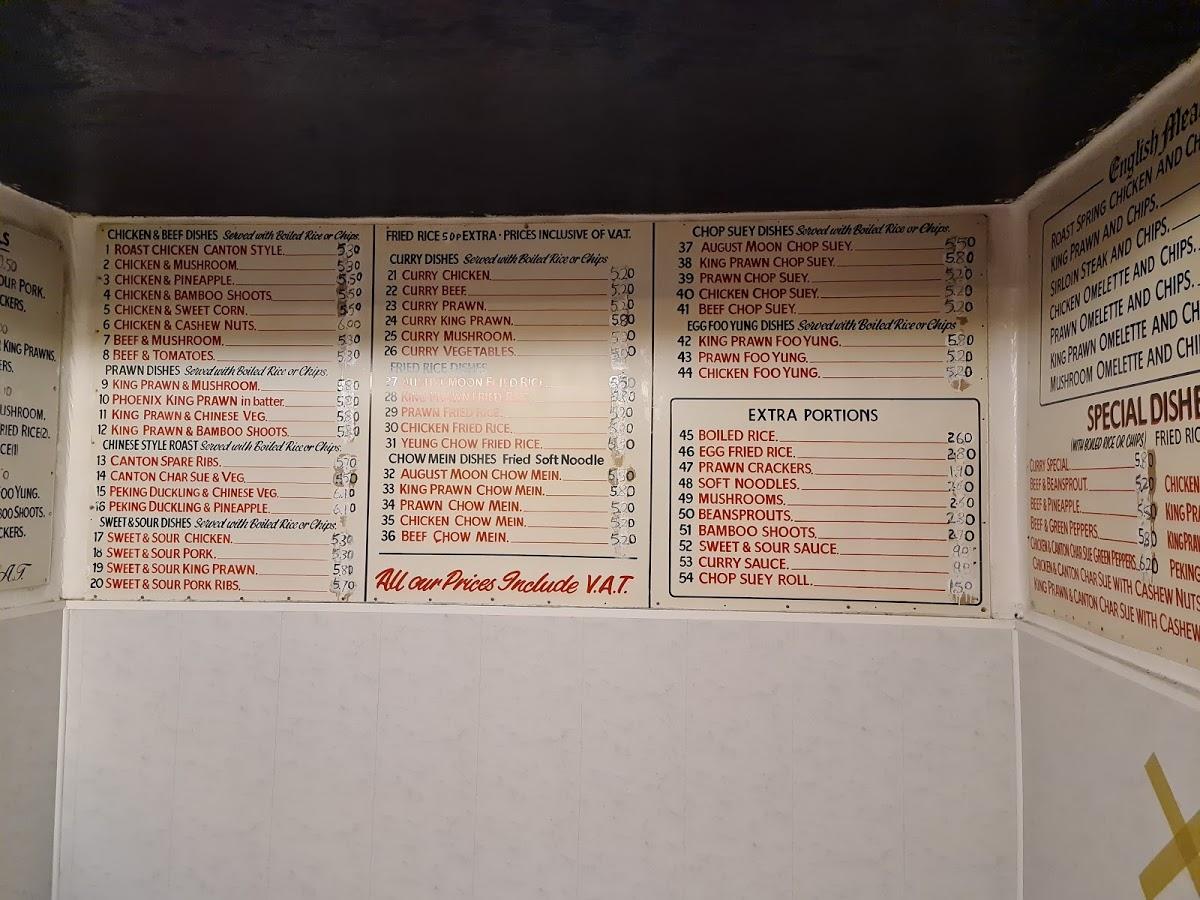 LS
OUR PORK.
CKERS.
KING PRAWNS.
ERS.
USHROOM.
FRIED RICE(2).
CE(1)
FOO YUNG.
BOO SHOOTS.
CKERS.
A.T.
CHICKEN & BEEF DISHES Served with Boiled Rice or Chips.
1 ROAST CHICKEN CANTON STYLE. 5.30
2 CHICKEN & MUSHROOM. 5.30
3 CHICKEN & PINEAPPLE. 5.50
4 CHICKEN & BAMBOO SHOOTS. 5.50
5 CHICKEN & SWEET CORN. 5.50
6 CHICKEN & CASHEW NUTS. 6.00
7 BEEF & MUSHROOM. 5.30
8 BEEF & TOMATOES. 5.30
PRAWN DISHES Served with Boiled Rice or Chips.
9 KING PRAWN & MUSHROOM. 5.80
10 PHOENIX KING PRAWN in batter. 5.80
11 KING PRAWN & CHINESE VEG. 5.80
12 KING PRAWN & BAMBOO SHOOTS. 5.80
CHINESE STYLE ROAST Served with Boiled Rice or Chips.
13 CANTON SPARE RIBS. 5.70
14 CANTON CHAR SUE & VEG.
15 PEKING DUCKLING & CHINESE VEG. 6.10
16 PEKING DUCKLING & PINEAPPLE. 6.10
SWEET & SOUR DISHES Served with Boiled Rice or Chips.
17 SWEET & SOUR CHICKEN. 5.30
18 SWEET & SOUR PORK. 5.30
19 SWEET & SOUR KING PRAWN. 5.80
20 SWEET & SOUR PORK RIBS. 5.70
FRIED RICE 50P EXTRA · PRICES INCLUSIVE OF V.A.T.
CURRY DISHES Served with Boiled Rice or Chips
21 CURRY CHICKEN. 5.20
22 CURRY BEEF. 5.20
23 CURRY PRAWN. 5.20
24 CURRY KING PRAWN. 5.80
25 CURRY MUSHROOM.
26 CURRY VEGETABLES.
FRIED RICE DISHES
27 AUGUST MOON FRIED RICE. 5.50
28 KING PRAWN FRIED RICE. 5.80
29 PRAWN FRIED RICE. 5.20
30 CHICKEN FRIED RICE. 5.20
31 YEUNG CHOW FRIED RICE.
CHOW MEIN DISHES Fried Soft Noodle
32 AUGUST MOON CHOW MEIN.
33 KING PRAWN CHOW MEIN. 5.80
34 PRAWN CHOW MEIN. 5.20
35 CHICKEN CHOW MEIN. 5.20
36 BEEF CHOW MEIN. 5.20
All our Prices Include V.A.T.
CHOP SUEY DISHES Served with Boiled Rice or Chips.
37 AUGUST MOON CHOP SUEY. 5.50
38 KING PRAWN CHOP SUEY. 5.80
39 PRAWN CHOP SUEY. 5.20
40 CHICKEN CHOP SUEY. 5.20
41 BEEF CHOP SUEY. 5.20
EGG FOO YUNG DISHES Served with Boiled Rice or Chips
42 KING PRAWN FOO YUNG. 5.80
43 PRAWN FOO YUNG. 5.20
44 CHICKEN FOO YUNG. 5.20
EXTRA PORTIONS
45 BOILED RICE. 2.60
46 EGG FRIED RICE. 2.80
47 PRAWN CRACKERS. 1.90
48 SOFT NOODLES.
49 MUSHROOMS.
50 BEANSPROUTS. 2.80
51 BAMBOO SHOOTS. 2.70
52 SWEET & SOUR SAUCE. 90
53 CURRY SAUCE. 90
54 CHOP SUEY ROLL. 1.50
English Mea
ROAST SPRING CHICKEN AND CH
KING PRAWN AND CHIPS.
SIRLOIN STEAK AND CHIPS.
CHICKEN OMELETTE AND CHIPS.
PRAWN OMELETTE AND CHIPS.
KING PRAWN OMELETTE AND CH
MUSHROOM OMELETTE AND CHI
SPECIAL DISHE
(WITH BOILED RICE OR CHIPS) FRIED RIC
CURRY SPECIAL 5.80
BEEF & BEANSPROUT. 5.20 CHICKEN
BEEF & PINEAPPLE. 5.50 KING PRA
BEEF & GREEN PEPPERS. 5.80 KING PRAW
CHICKEN & CANTON CHAR SUE GREEN PEPPERS. 6.20 PEKING
CHICKEN & CANTON CHAR SUE WITH CASHEW NUTS
KING PRAWN & CANTON CHAR SUE WITH CASHEW